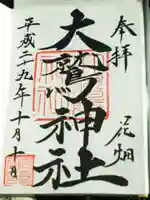 奉拝
花畑
大鷲神社
平成二十九年十月十日